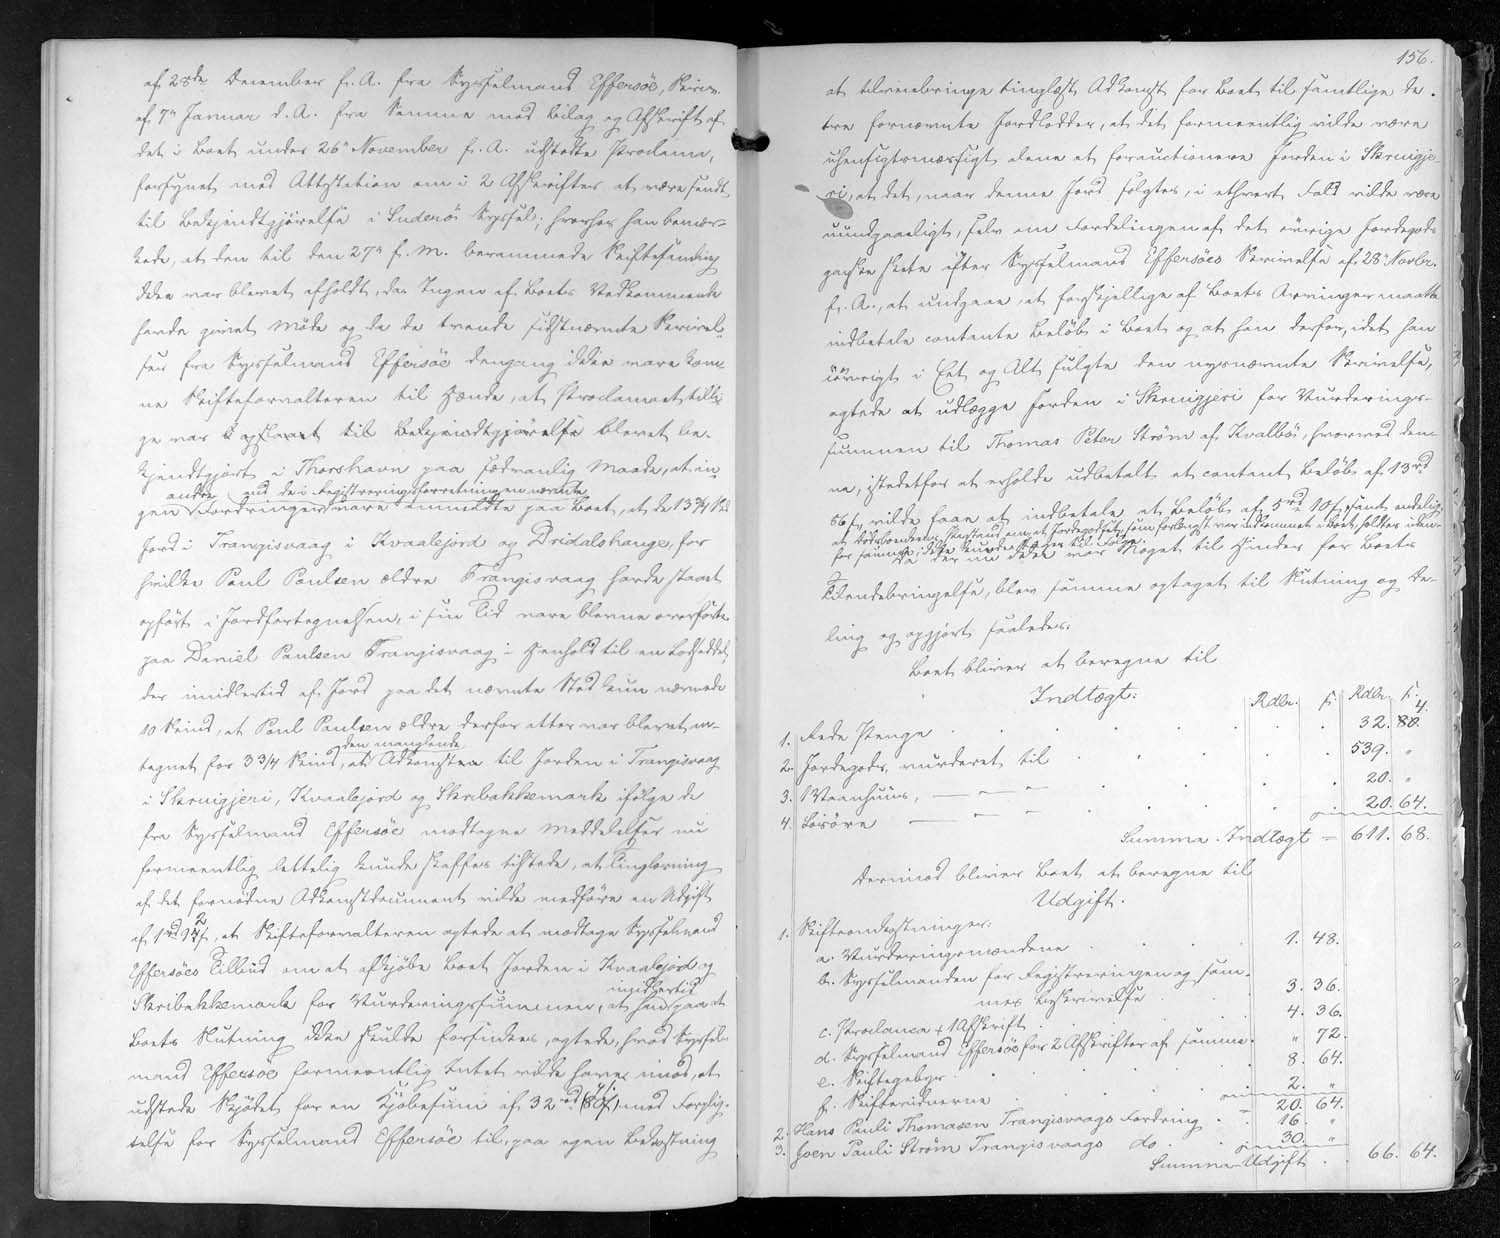 af 28de December f. A. fra Sysselmand Effersöe, Skriv.
af 7n Januar d. A. fra Samme med Bilag og Afskrift af
det i Boet under 26n November f. A. udstedte Proclama,
forsynet med Attestation om i 2 Afskrifter at være sendt
til Bekjendtgjörelse i Suderö Syssel; hvorhos han bemær-
kede, at den til den 27n f. M. berammede Skiftesamling
ikke var blevet afholdt, da Ingen af Boets Vedkommende
havde givet Möde og da de tvende sidstnævnte Skrivel-
ser fra Sysselmand Effersöe dengang ikke vare kom-
ne Skifteforvalteren til Hænde, at Proclamaet tilli-
ge var opslaaet til Bekjendtgjörelse blevet be-
kjendtgjört i Thorshavn paa sædvanlig Maade, at in-
andre end de i Registreringsforretningen nævnte
gen Fordringer vare anmeldte paa Boet, at de 13 3/4 Skd
Jord i Trangisvaag i Kvaalejord og Dridalshange, for
hvilke Poul Poulsen ældre Trangisvaag havde staaet
opfört i Jordfortegnelsen, i sin Tid vare blevne overförte
paa Daniel Paulsen Trangisvaag i Henhold til en Lodseddel,
der imidlertid af Jord paa det nævnte Sted kun nævnede
10 Skind, at Poul Poulsen ældre derfor atter var blevet an-
den manglende
tegnet for 3 3/4 Skind, at Adkomsten til Jorden i Trangisvaag
i Skruigjeri, Kvaalejord og Skribakkemark ifölge de
fra Sysselmand Effersöe modtagne Meddelelser nu
formeentlig lettelig kunde skaffes tilstede, at Tinglæsning
af det fornödne Adkomstdocument vilde medföre en Udgift
af 1rd 2 f, at Skifteforvalteren agtede at modtage Sysselmand
Effersöes Tilbud om at afkjöbe Boet Jorden i Kvaalejord og
imidlertid
Skribakkemark for Vurderingssummen, at han paa at
Boets Slutning ikke skulde forsinkes, agtede, hvad Syssel-
mand Effersöe formeentlig Intet vilde have imod, at
udstede Skjödet for en Kjöbesum af 32rd 4 f, med Forplig-
telse for Sysselmand Effersöe til, paa egen Bekostning
156.
at tilveiebringe tinglæst Adkomst for Boet til samtlige de-
tre fornævnte Jordlodder, at det formeentlig vilde være
uhensigtsmæssigt alene at forauctionere Jorden i Skruigje-
ri, at det, naar denne Jord solgtes, i ethvert Fald vilde være
uundgaaeligt, selv om Fordelingen af det övrige Jordegods
ganske skete efter Sysselmand Effersöes Skrivelse af 28n Novbr.
f. A., at undgaae, at forskjellige af Boets Arvinger maatte
indbetale contante Belöb i Boet og at han derfor, idet han
iövrigt i Eet og Alt fulgte den nysnævnte Skrivelse,
agtede at udlægge Jorden i Skruigjeri for Vurderings-
summen til Thomas Peter Ström af Kvalbö, hvorved den-
ne, istedetfor at erholde udbetalt et contant Belöb af 13rd
56 f, vilde faae at indbetale et Belöb af 5rd 10 f, samt endelig,
at Arvevedkommendes Paastand om at Jordegodset, som forlængst var indkommet i Boet, holdes uden-
for samme, ikke kunde tages til Fölge.
Da der nu ikke var Noget til Hinder for Boets
Tilendebringelse, blev samme optaget til Slutning og De-
ling og opgjort saaledes:
Boet bliver at beregne til
Indtægt: Rdlr. f. Rdlr. f.
1. Rede Penge . . . 32. 4.
2. Jordegods, vurderet til . . . 539. "
3. 1 Vaanhuus, — " — . . . 20. "
4. Lösöre — " — . . . 20. 64.
Summa Indtægt = 611. 68.
Derimod bliver Boet at beregne til
Udgift.
1. Skifteomkostninger:
a. Vurderingsmændene . . . 1. 48.
b. Sysselmanden for Registreringen og sam-
mes Beskrivelse . . . 3. 36.
c. Proclama & 1 Afskrift . . . 4. 36.
d. Sysselmand Effersöe for 2 Afskrifter af samme . " 72.
e. Skiftegebyr . . . 8. 64.
f. Skiftevidnerne . . . 2. "
= 20. 64.
2. Hans Pauli Thomasen Trangisvaags Fordring . . 16. "
3. Joen Pauli Ström Trangisvaags do . . 30. "
Summa Udgift . . 66. 64.